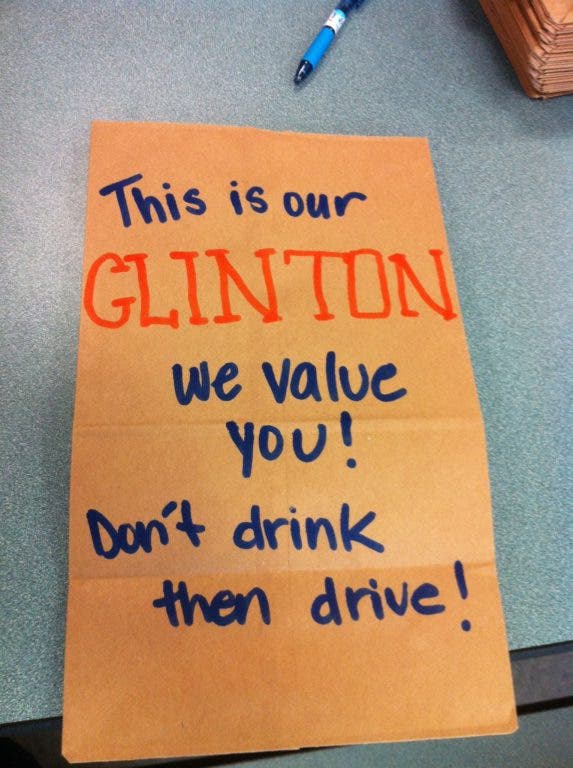 This is our
CLINTON
we value
you!
Don't drink
then drive!